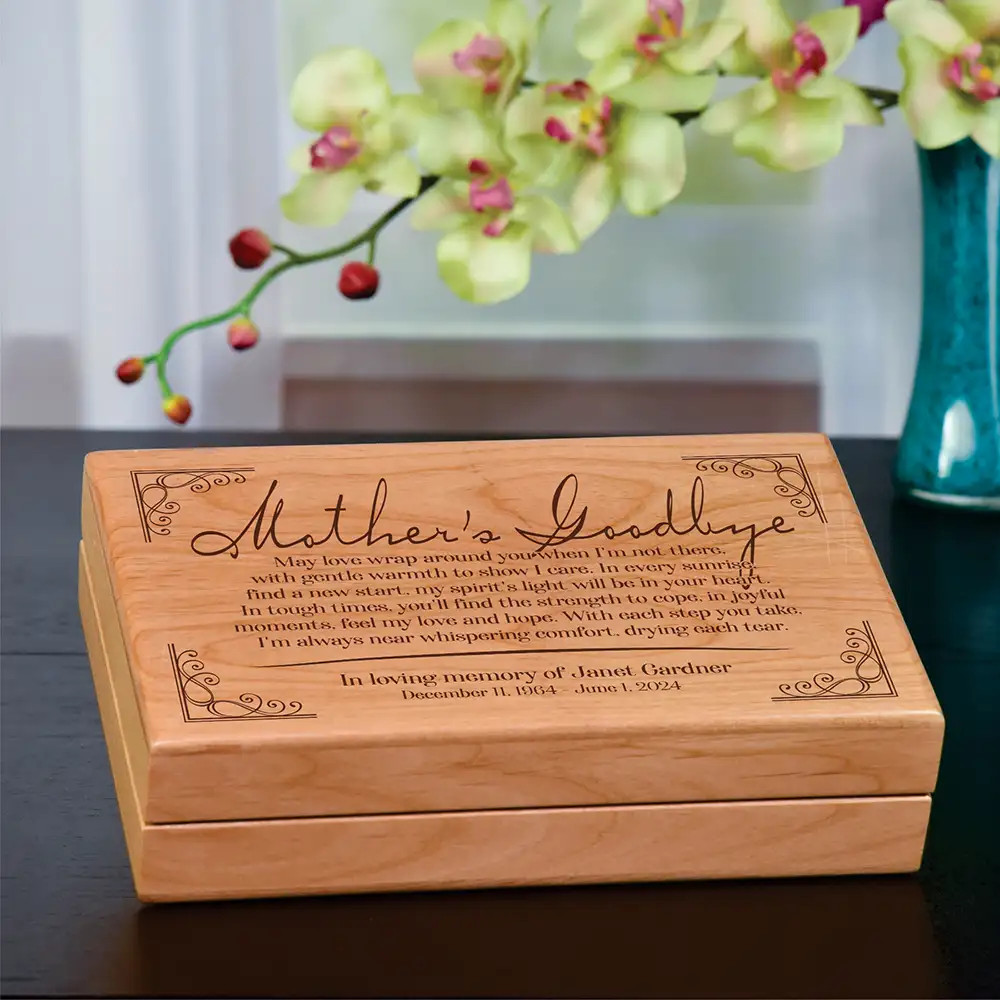 Mother's Goodbye
May love wrap around you when I'm not there,
with gentle warmth to show I care. In every sunrise,
find a new start, my spirit's light will be in your heart.
In tough times, you'll find the strength to cope, in joyful
moments, feel my love and hope. With each step you take,
I'm always near whispering comfort, drying each tear.
In loving memory of Janet Gardner
December 11, 1964 - June 1, 2024